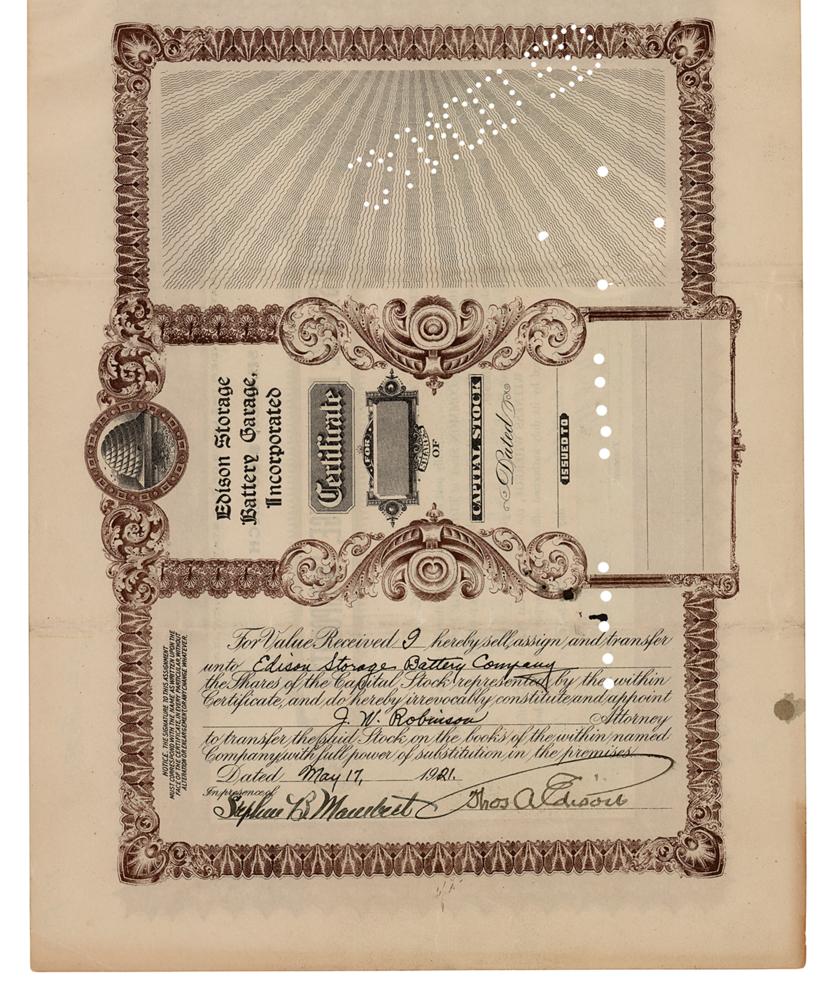 Edison Storage
Battery Garage,
Incorporated
Certificate
FOR
SHARES
OF
CAPITAL STOCK
Dated
ISSUED TO
NOTICE. THE SIGNATURE TO THIS ASSIGNMENT
MUST CORRESPOND WITH THE NAME AS WRITTEN UPON THE
FACE OF THE CERTIFICATE, IN EVERY PARTICULAR, WITHOUT
ALTERATION OR ENLARGEMENT OR ANY CHANGE WHATEVER.
For Value Received I hereby sell, assign and transfer
unto Edison Storage Battery Company
the Shares of the Capital Stock represented by the within
Certificate, and do hereby irrevocably constitute and appoint
J. W. Robinson Attorney
to transfer the said Stock on the books of the within named
Company with full power of substitution in the premises.
Dated May 17, 1921.
In presence of
Stephen B. Mambert Thos A Edison